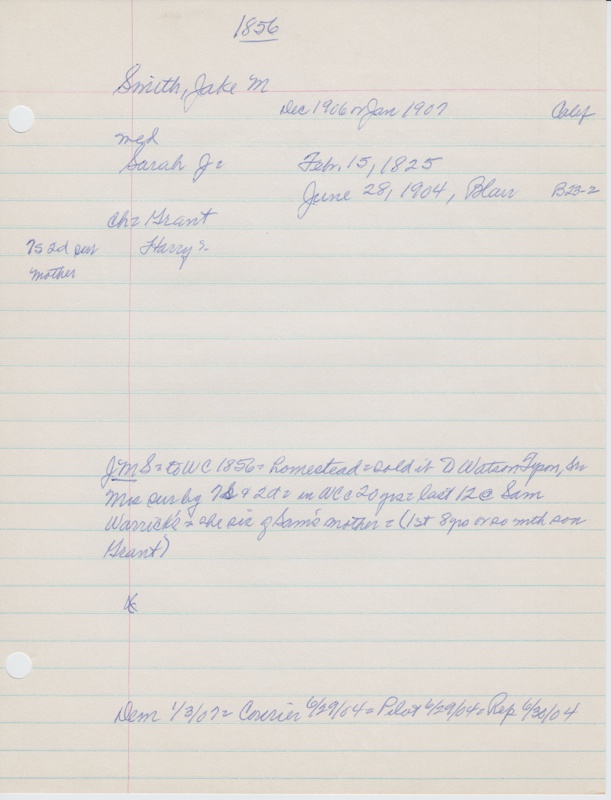 1856
Smith, Jake M
Dec 1906 or Jan 1907 Calif
mgd
Sarah J= Feb. 15, 1825
June 28, 1904, Blair B23-2
ch= Grant
7s 2d sur Harry S.
mother
JMS= to WC 1856= homestead= sold it D Watson Tyson, Sr
Mrs sur by 7s & 2d= in WC c 20 yrs= last 12 @ Sam
Warrick's= she sis of Sam's mother= (1st 8 yrs or so with son
Grant)
Dem 1/3/07= Courier 6/29/04= Pilot 6/29/04= Rep 6/30/04